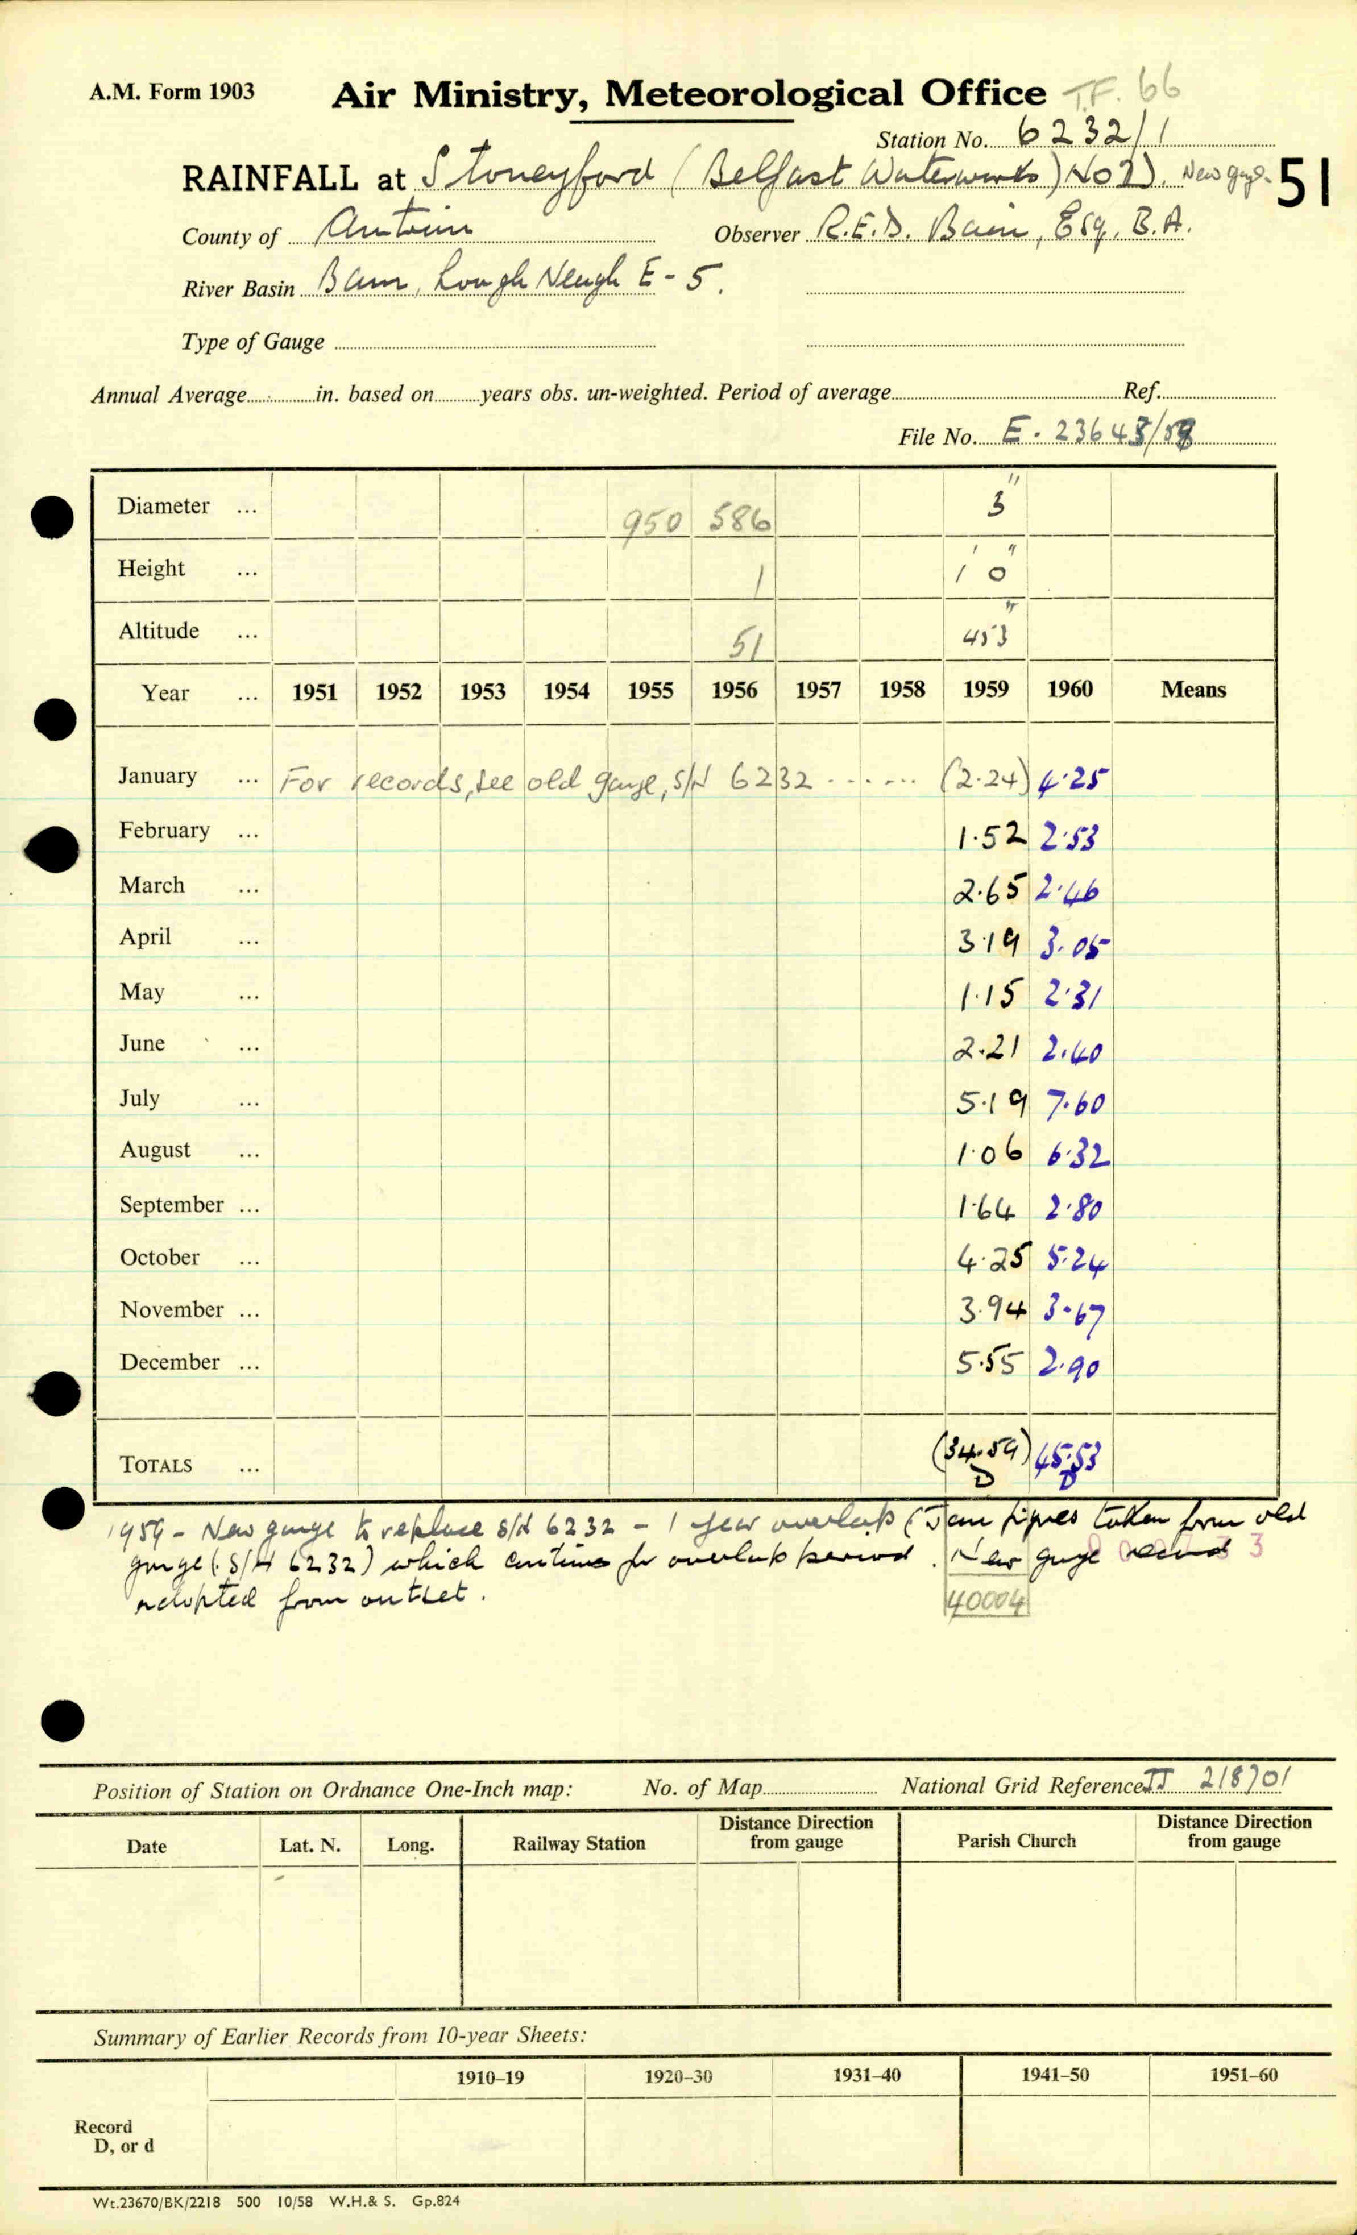 A.M. Form 1903 Air Ministry, Meteorological Office T.F. 66
Station No. 6232/1
RAINFALL at Stoneyford (Belfast Waterworks) No 2). New gauge. 51
County of Antrim Observer R.E.D. Bain, Esq, B.A.
River Basin Bann, Lough Neagh E-5.
Type of Gauge
Annual Average in. based on years obs. un-weighted. Period of average Ref.
File No. E. 23643/59
Diameter ... 950 586 3"
Height ... 1 1' 0"
Altitude ... 51 453"
Year ... 1951 1952 1953 1954 1955 1956 1957 1958 1959 1960 Means
January ... For records, see old gauge, S/N 6232 ....... (2.24) 4.25
February ... 1.52 2.53
March ... 2.65 2.46
April ... 3.19 3.05
May ... 1.15 2.31
June ... 2.21 2.40
July ... 5.19 7.60
August ... 1.06 6.32
September ... 1.64 2.80
October ... 4.25 5.24
November ... 3.94 3.67
December ... 5.55 2.90
TOTALS ... (34.59) 45.53
D D
1959 - New gauge to replace S/N 6232 - 1 year overlap (Jan figures taken from old
gauge (S/N 6232) which continues for overlap period. New gauge record
adopted from outset.
40004
Position of Station on Ordnance One-Inch map: No. of Map National Grid Reference IJ 218701
Date Lat. N. Long. Railway Station Distance Direction from gauge Parish Church Distance Direction from gauge
Summary of Earlier Records from 10-year Sheets:
1910–19 1920–30 1931–40 1941–50 1951–60
Record
D, or d
Wt.23670/BK/2218 500 10/58 W.H.& S. Gp.824